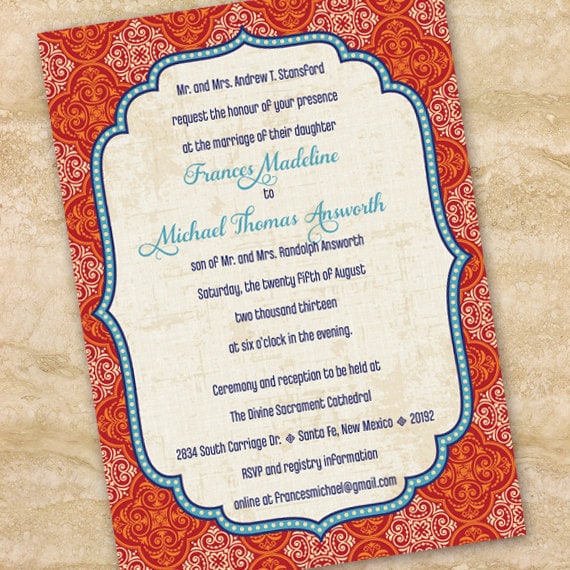 Mr. and Mrs. Andrew T. Stansford
request the honour of your presence
at the marriage of their daughter
Frances Madeline
to
Michael Thomas Answorth
son of Mr. and Mrs. Randolph Answorth
Saturday, the twenty fifth of August
two thousand thirteen
at six o'clock in the evening.
Ceremony and reception to be held at
The Divine Sacrament Cathedral
2834 South Carriage Dr. ❖ Santa Fe, New Mexico ❖ 20192
RSVP and registry information
online at francesmichael@gmail.com